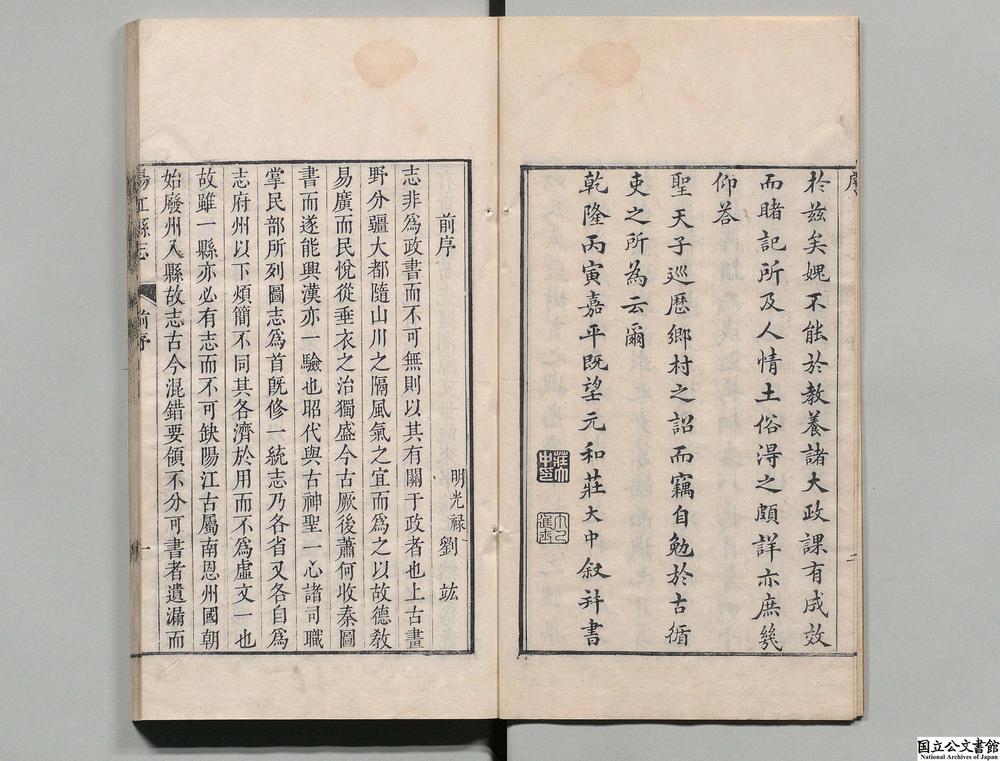 序
二
於茲矣媿不能於教養諸大政課有成效
而睹記所及人情土俗淂之頗詳亦庶幾
仰荅
聖天子巡歷鄉村之詔而竊自勉於古循
吏之所為云爾
乾隆丙寅嘉平既望元和莊大中敘并書
莊大中印
前序
明光祿劉竑
志非爲政書而不可無則以其有關于政者也上古畫
野分疆大都隨山川之隔風氣之宜而爲之以故德敎
易廣而民悅從垂衣之治獨盛今古厥後蕭何收秦圖
書而遂能興漢亦一驗也昭代與古神聖一心諸司職
掌民部所列圖志爲首旣修一統志乃各省又各自爲
志府州以下煩簡不同其各濟於用而不爲虛文一也
故雖一縣亦必有志而不可缺陽江古屬南恩州國朝
始廢州入縣故志古今混錯要領不分可書者遺漏而
陽江縣志
前序
一
国立公文書館
National Archives of Japan